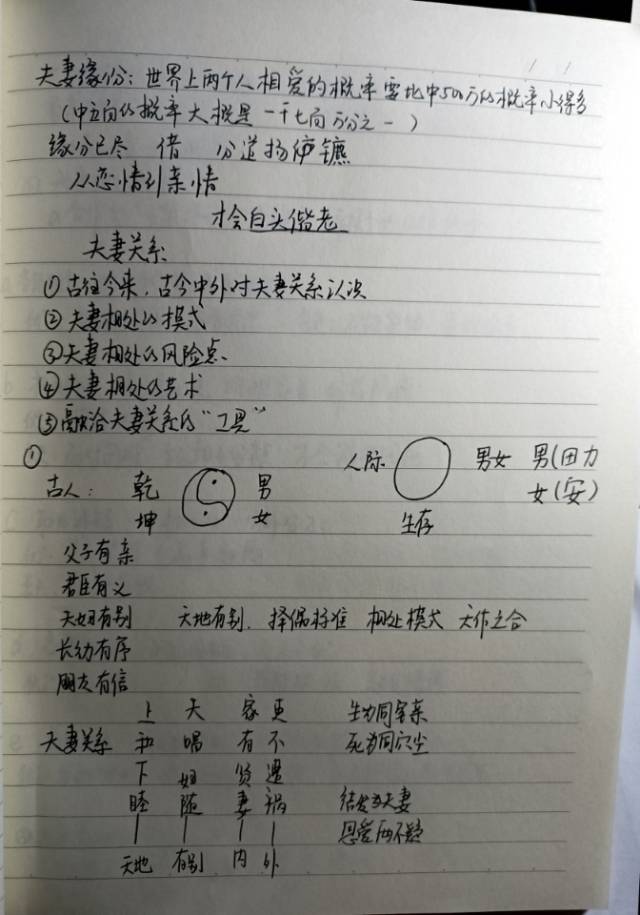 夫妻缘份：世界上两个人相爱的概率要比中500万的概率小得多
（中立向的概率大概是一千七向万分之一）
缘分已尽 借 分道扬镳
从恋情到亲情
才会白头偕老
夫妻关系
①古往今来，古今中外对夫妻关系认次
②夫妻相处的模式
③夫妻相处的风险点.
④夫妻相处的艺术
⑤融洽夫妻关系的“工具”
①
人际 男女 男(田力
古人： 乾 男 女(安)
坤 女 生存
父子有亲
君臣有义
夫妇有别 天地有别. 择偶标准 相处模式 天作之合
长幼有序
朋友有信
上 夫 家 更 生为同室亲
夫妻关系 和 唱 有 不 死为同穴尘
下 妇 贤 遭
睦 随 妻 祸 结发为夫妻
| | | | 恩爱两不疑
天地 有别 内 外